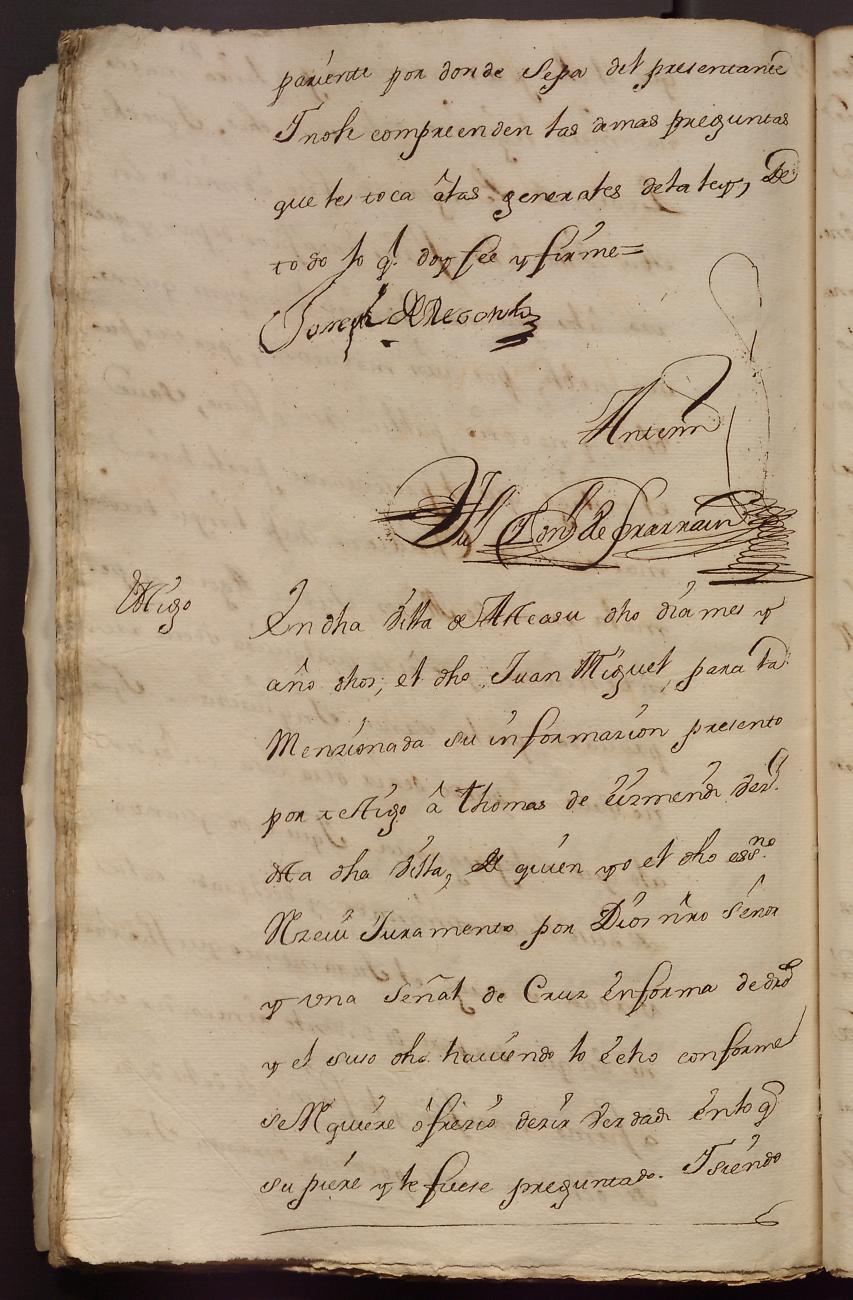 pariente por donde sepa del presentante
Y nole compreenden las demas preguntas
que les toca â las generales dela ley, De
todo lo q.^ doy fee y firme=
Joseph
Antemi
de
testigo
En dha Villa de dho dia mes y
año dhos, el dho Juan Miguel, para la
Menzionada su informazion presento
por testigo â Thomas de vez.^o
de la dha Villa, de quien yo el dho ess.^no
Rzeui Juramento por Dios nr̃o Señor
y una Señal de Cruz en forma de dr̃o
y el suso dho hauiendo lo echo conforme
se Rquiere ofrezio dezir Verdad en lo q^
supiere y le fuese preguntado. Y siendo